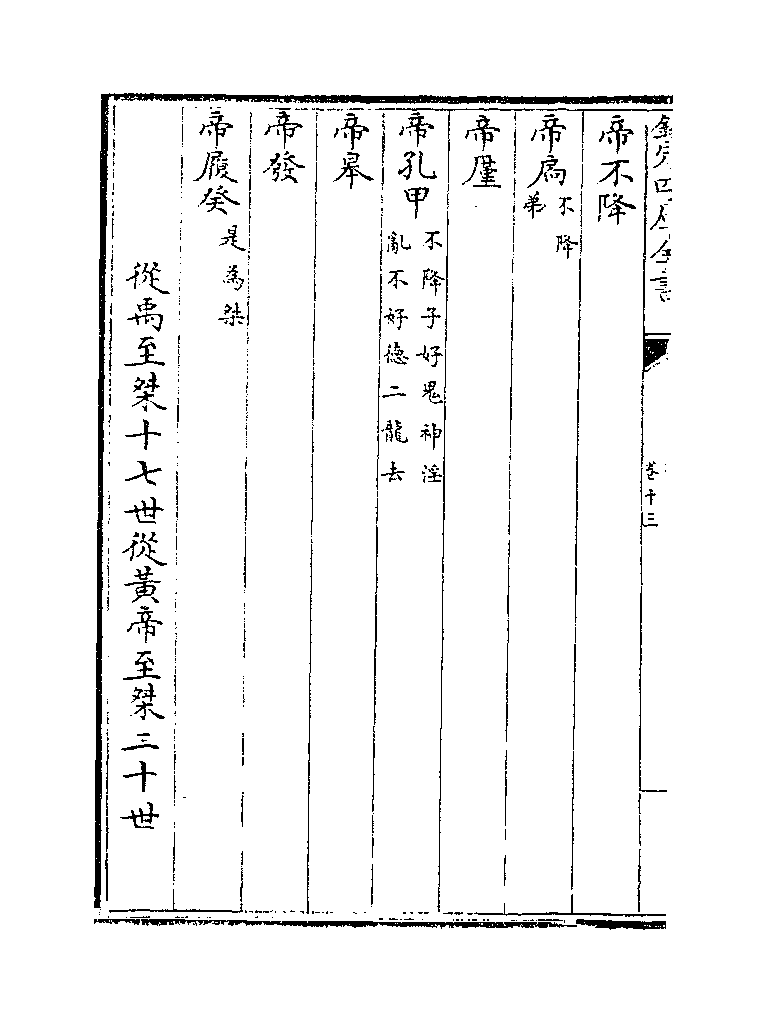 欽定四庫全書
卷十三
帝不降
帝扃 不降弟
帝廑
帝孔甲 不降子好鬼神淫亂不好德二龍去
帝皋
帝發
帝履癸 是為桀
從禹至桀十七世從黃帝至桀二十世